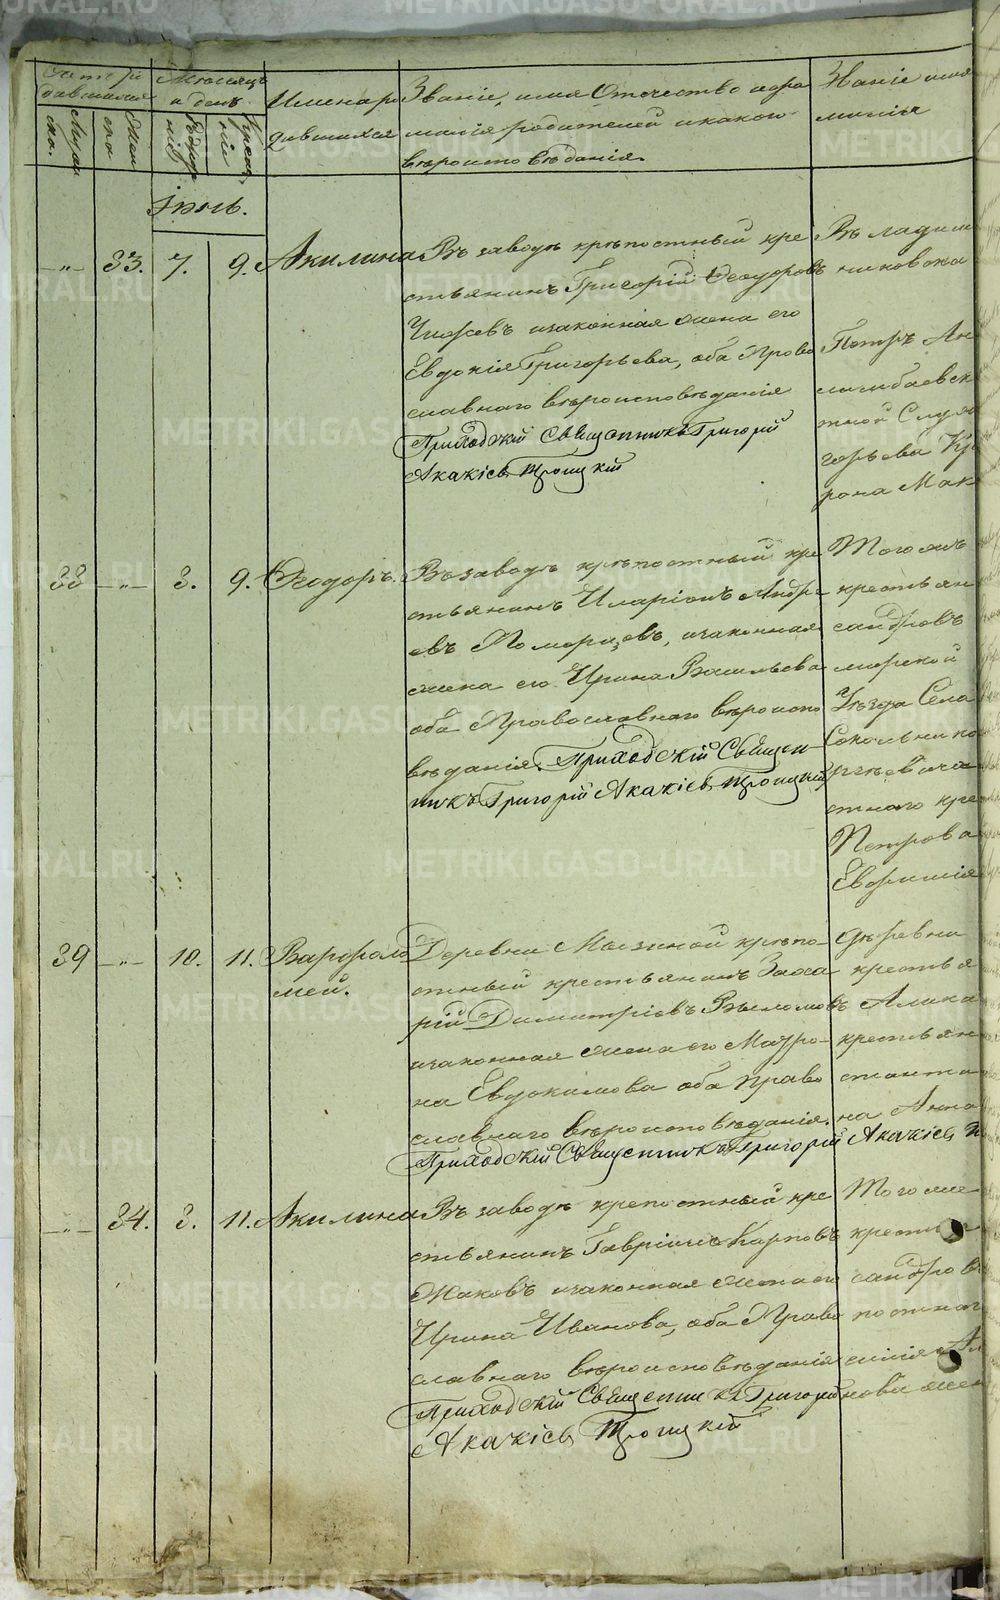 Мѣсяцъ
и день
Имена ро
дившихся
Званіе, имя Отечество и фа
милія родителей и какого
вѣроисповѣданія.
Званіе имя
милія
Муже
ска.
Жен
ска
Рожде
нія
Креще
нія
Іюнь.
—"— 33. 7. 9. Акилина
Въ заводѣ крѣпостный кре
стьянинъ Григорій Ѳеодоровъ
изаконная жена его
Евдокія Григорьева, оба Право
славнаго вѣроисповѣданія
Приходскій Священникъ Григорій
Акакіевъ Троицкій
Петръ Ан
рона Мак
38 —"— 8. 9. Ѳеодоръ.
Въ заводѣ крѣпостный кре
стьянинъ Иларіонъ Андре
евъ Поморцевъ, изаконная
жена его Ирина Васильева
оба Православнаго вѣроиспо
вѣданія. Приходскій Священ
никъ Григорій Акакіевъ Троицкій
Того жъ
крестьян
сандровъ
мирской
Уѣзда Села
стнаго кре
Петрова
Евфимія
39 —"— 10. 11. Варфоло
мей.
Деревни Мызиной крѣпо-
стный крестьянинъ Заха
рій Димитріевъ
изаконная жена его Матро-
на Евдокимова оба Право
славнаго вѣроисповѣданія.
Приходскій Священникъ Григорій Акакіевъ
деревни
крестья
крестьян
на Анна
—"— 34. 8. 11. Акилина
Въ заводѣ крепостный кре
стьянинъ Гавріилъ Карповъ
изаконная жена его
Ирина Иванова, оба Право
славнаго вѣроисповѣданія
Приходскій Священникъ Григорій
Акакіевъ Троицкій
Того же
кресть
сандров
постнаг
нова жен
METRIKI.GASO-URAL.RU